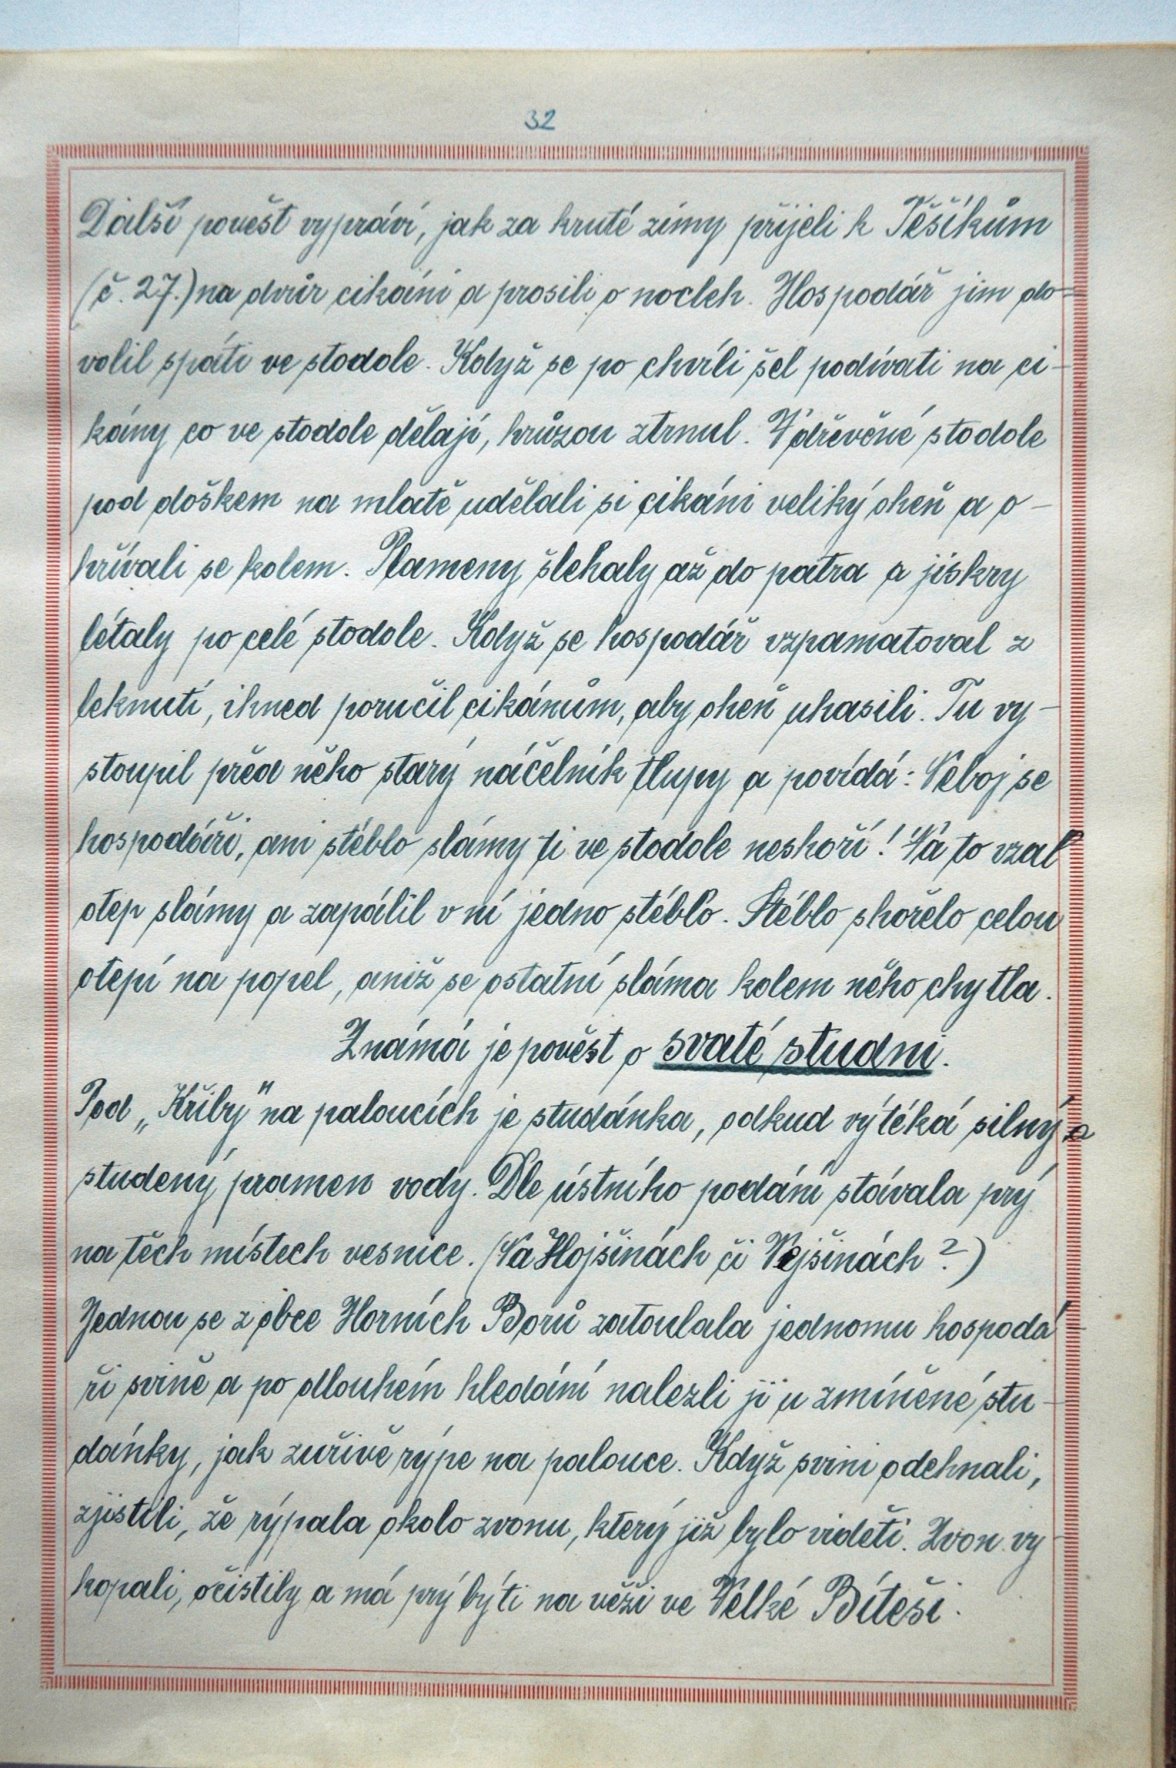 32
Další pověst vypráví, jak za kruté zimy přijeli k Těšíkům
(č. 27.) na dvůr cikáni a prosili o nocleh. Hospodář jim do-
volil spáti ve stodole. Když se po chvíli šel podívati na ci-
kány co ve stodole dělají, hrůzou ztrnul. V dřevěné stodole
pod doškem na mlatě udělali si cikáni veliký oheň a o-
hřívali se kolem. Plameny šlehaly až do patra a jiskry
létaly po celé stodole. Když se hospodář vzpamatoval z
leknutí, ihned poručil cikánům, aby oheň uhasili. Tu vy-
stoupil před něho starý náčelník tlupy a povídá: Neboj se
hospodáři, ani stéblo slámy ti ve stodole neshoří! Na to vzal
otep slámy a zapálil v ní jedno stéblo. Stéblo shořelo celou
otepí na popel, aniž se ostatní sláma kolem něho chytla.
Známá je pověst o svaté studni.
Pod „Křiby" na paloucích je studánka, odkud výtéká silný a
studený pramen vody. Dle ústního podání stávala prý
na těch místech vesnice. (Na Hojšinách či Vejšinách?)
Jednou se z obce Horních Borů zatoulala jednomu hospodá-
ři svině a po dlouhém hledání nalezli ji u zmíněné stu-
dánky, jak zuřivě rýpe na palouce. Když svini odehnali,
zjistili, že rýpala okolo zvonu, který již bylo viděti. Zvon vy-
kopali, očistily a má prý býti na věži ve Velké Bíteši.